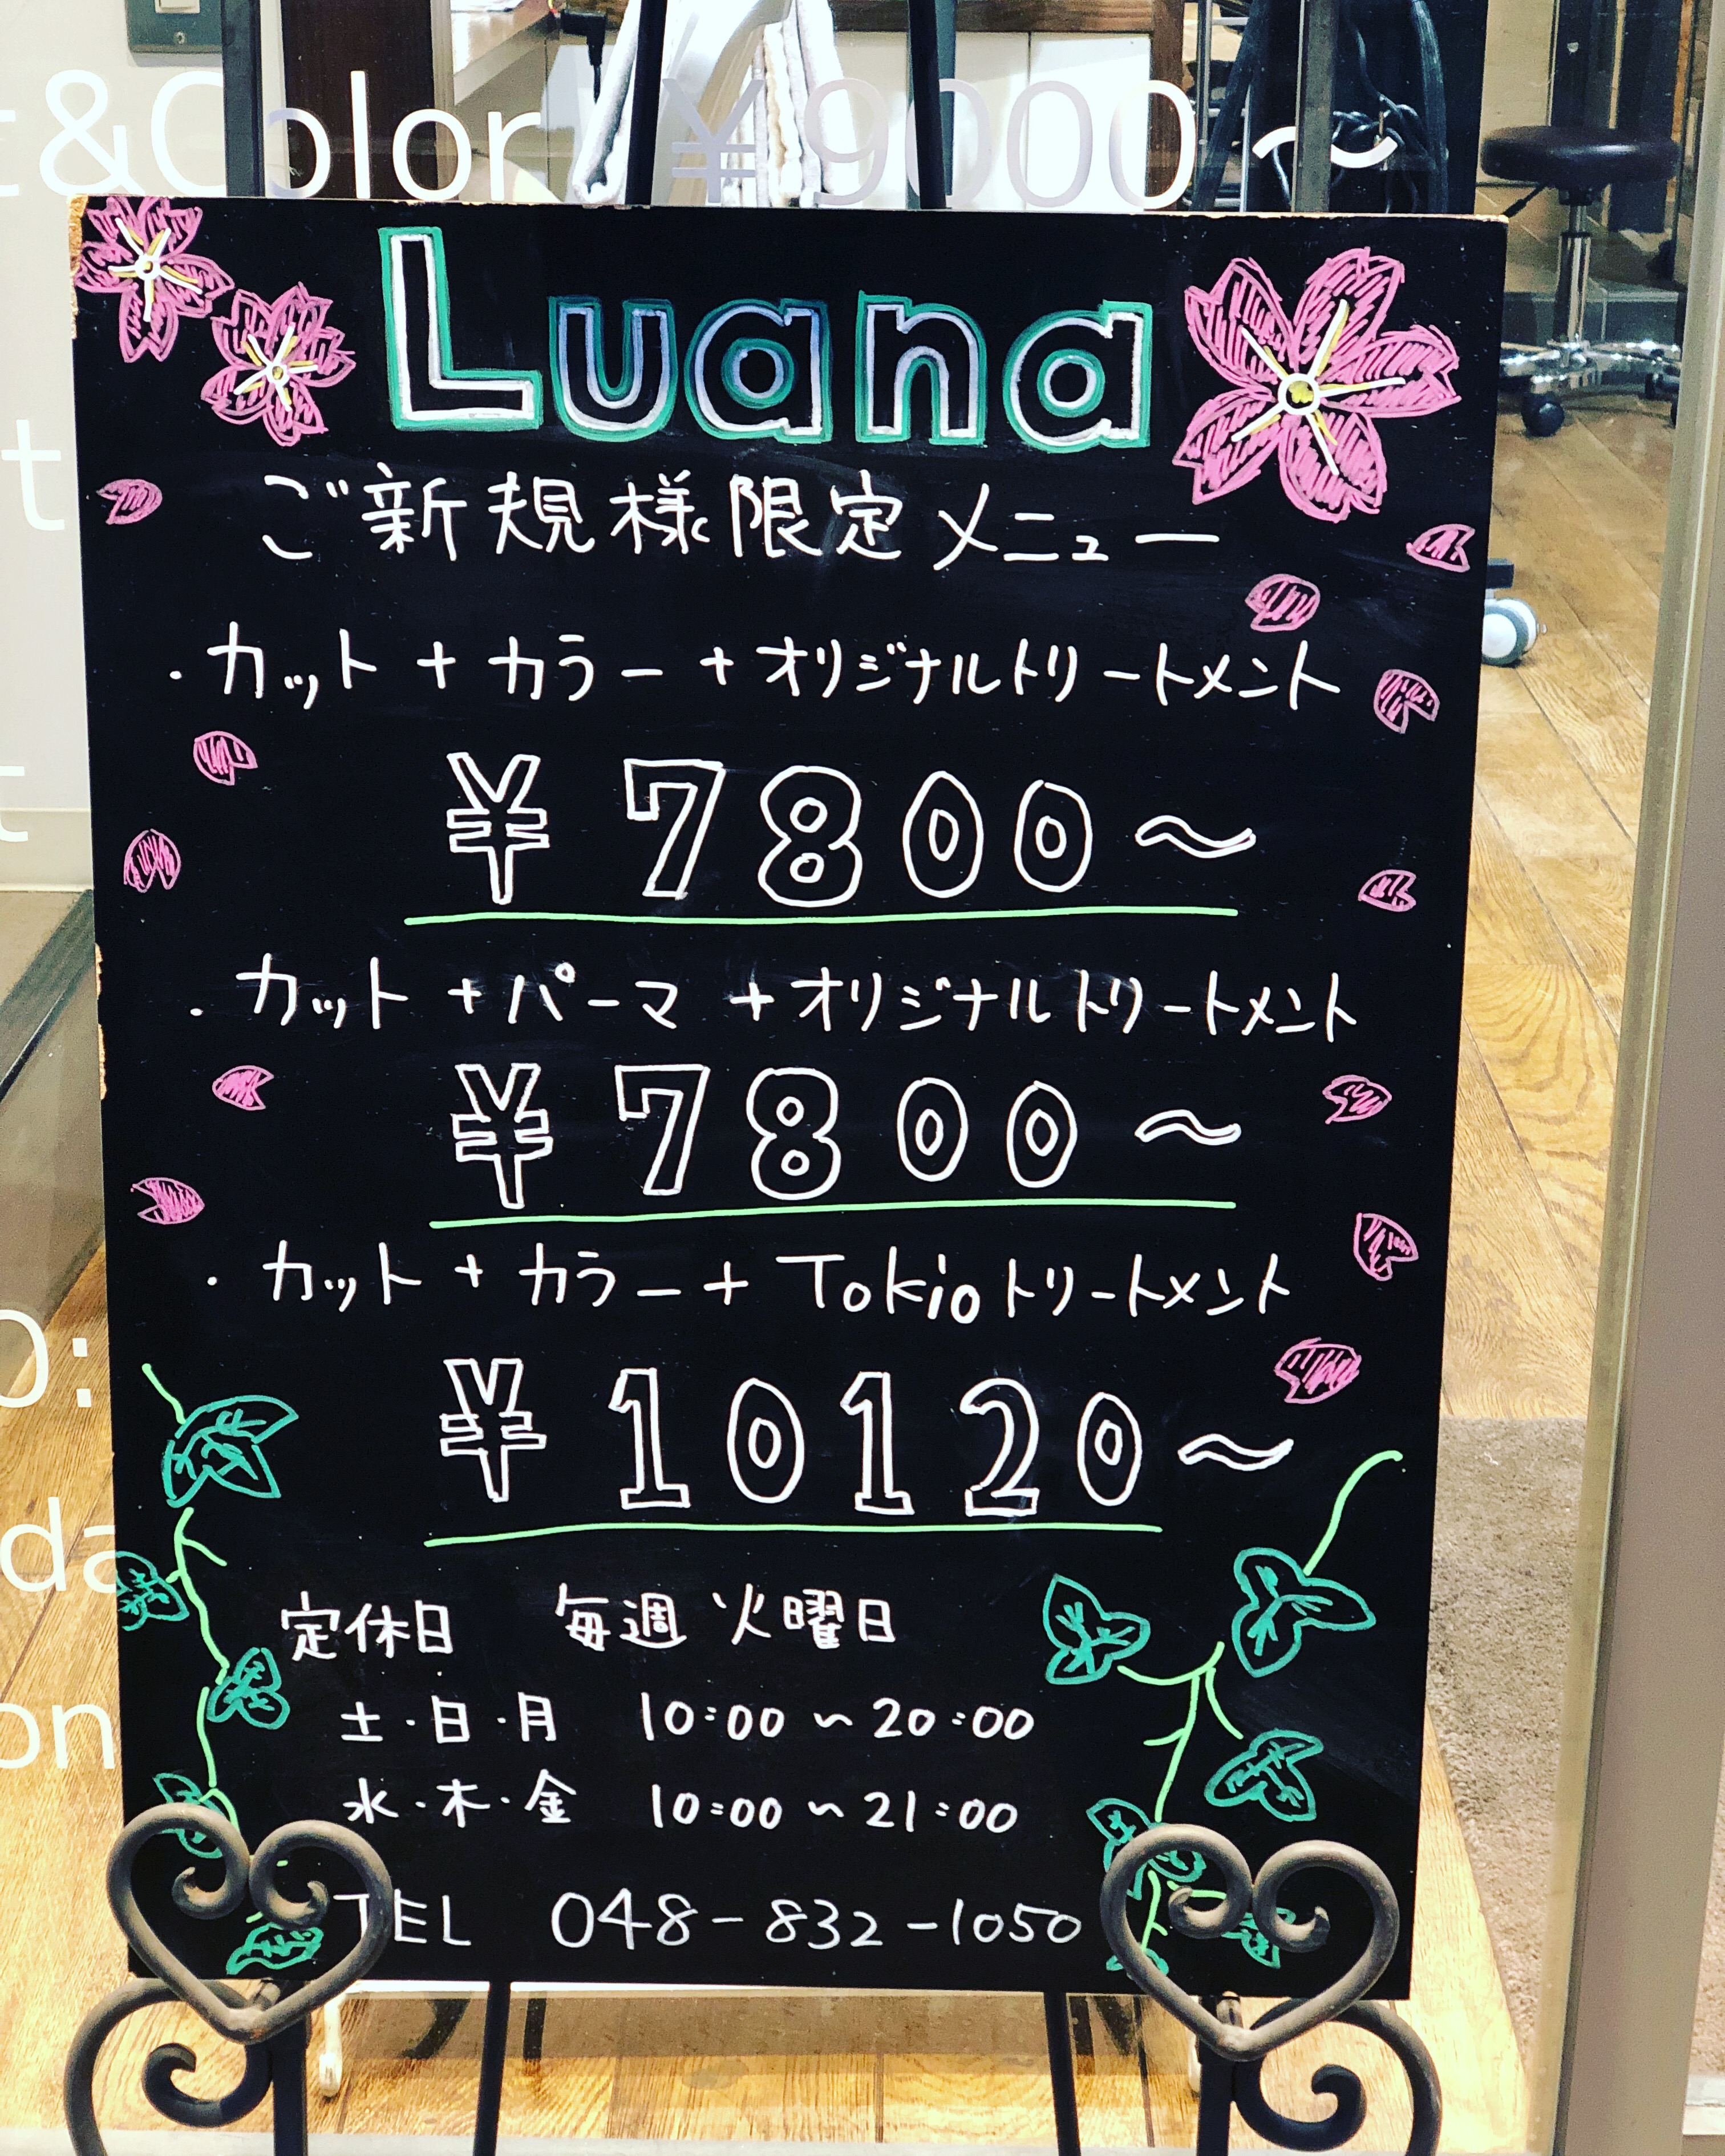 &Color ¥9000~
Luana
ご新規様限定メニュー
・カット+カラー+オリジナルトリートメント
¥7800~
・カット+パーマ+オリジナルトリートメント
¥7800~
・カット+カラー+Tokioトリートメント
¥10120~
定休日 毎週火曜日
土・日・月 10:00~20:00
水・木・金 10:00~21:00
TEL 048-832-1050